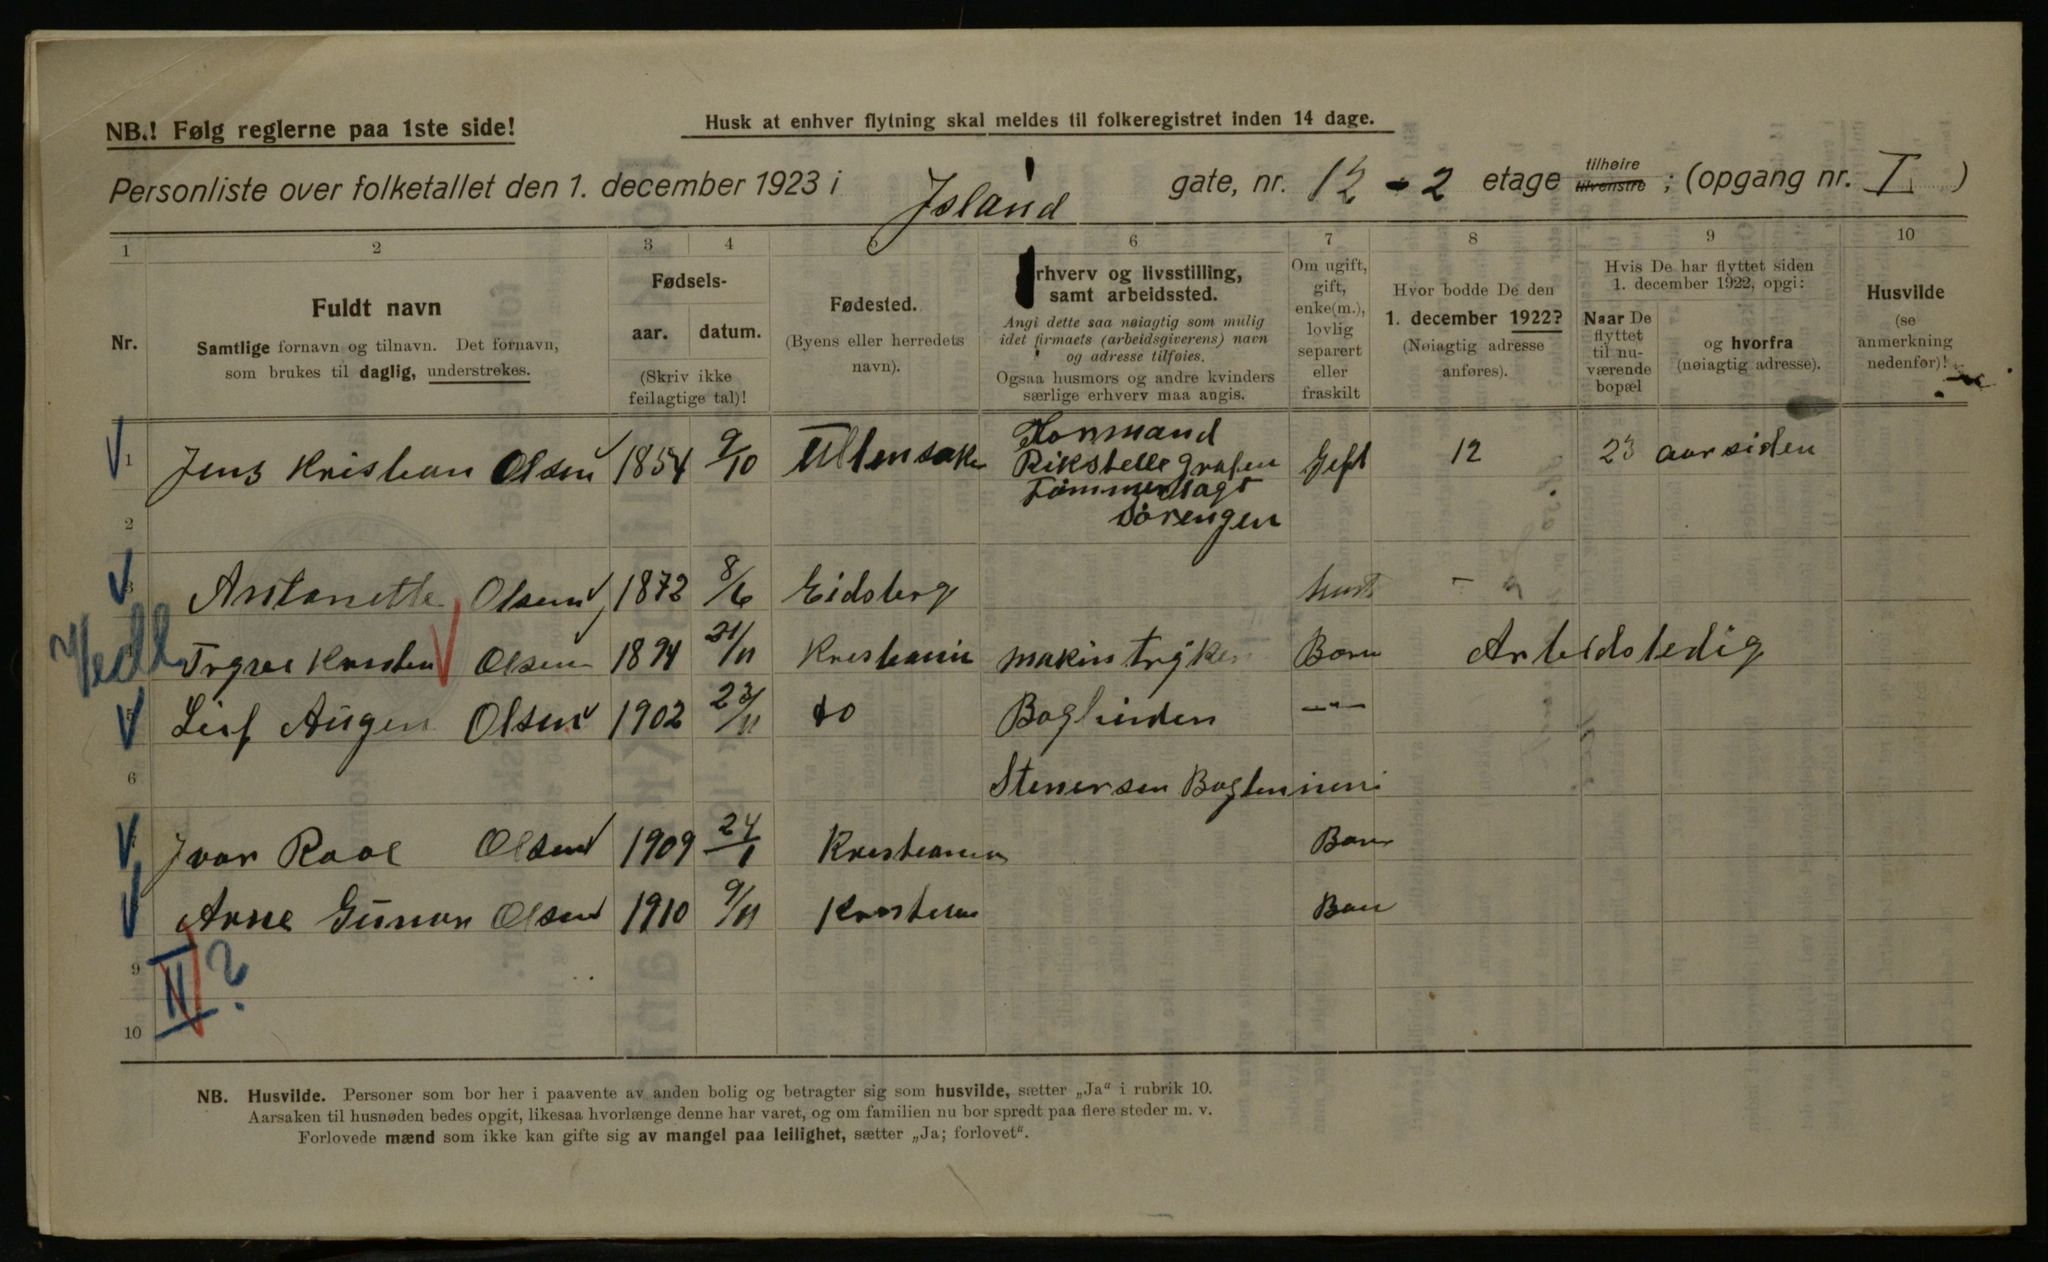 NB.! Følg reglerne paa 1ste side!
Husk at enhver flytning skal meldes til folkeregistret inden 14 dage.
Personliste over folketallet den 1. december 1923 i Island gate, nr. 12 - 2 etage tilhøire tilvenstre ; (opgang nr. I )
1 2 3 4 5 6 7 8 9 10
Nr.
Fuldt navn
Samtlige fornavn og tilnavn. Det fornavn,
som brukes til daglig, understrekes.
Fødsels-
aar. datum.
(Skriv ikke
feilagtige tal)!
Fødested.
(Byens eller herredets
navn).
rhverv og livsstilling,
samt arbeidssted.
Angi dette saa nøiagtig som mulig
idet firmaets (arbeidsgiverens) navn
og adresse tilføies.
Ogsaa husmors og andre kvinders
særlige erhverv maa angis.
Om ugift,
gift,
enke(m.),
lovlig
separert
eller
fraskilt
Hvor bodde De den
1. december 1922?
(Nøiagtig adresse
anføres).
Hvis De har flyttet siden
1. december 1922, opgi:
Naar De
flyttet
til nu-
værende
bopæl
og hvorfra
(nøiagtig adresse).
Husvilde
(se
anmerkning
nedenfor)!
1 Jens Kristian Olsen 1854 9/10 Ullensaker Formand Gift 12 23 aar siden
Rikstellegrafen
Tømmerlagt
2 Sørengen
3 Antonette Olsen 1872 8/6 Eidsberg
4 Trgve Kristen Olsen 1894 21/11 Kristiania makintryker Barn Arbeidsledig
5 Leif Augen Olsen 1902 23/11 do Bogbinden — " —
6 Stenersen
Ivar Roal Olsen 1909 24/1 Kristiania Barn
Arne Gunnar Olsen 1910 9/11 Kristiania Barn
9 II ?
10
NB. Husvilde. Personer som bor her i paavente av anden bolig og betragter sig som husvilde, sætter „Ja“ i rubrik 10.
Aarsaken til husnøden bedes opgit, likesaa hvorlænge denne har varet, og om familien nu bor spredt paa flere steder m. v.
Forlovede mænd som ikke kan gifte sig av mangel paa leilighet, sætter „Ja; forlovet“.